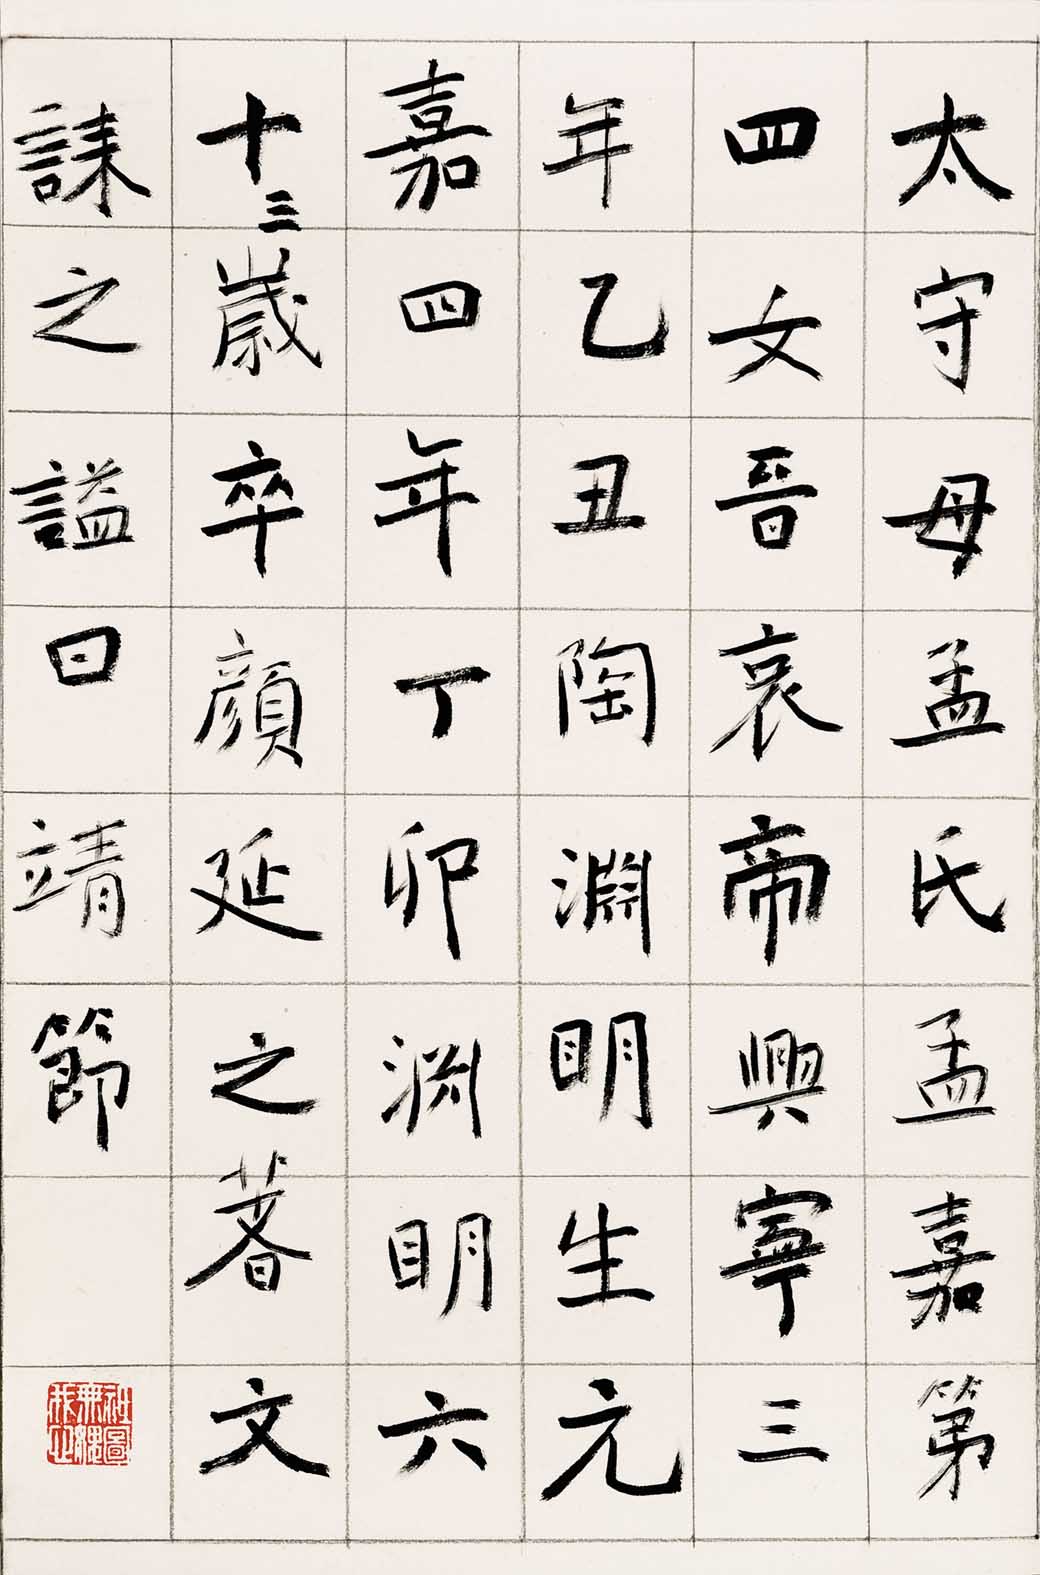 太守母孟氏孟嘉第
四女晉哀帝興寧三
年乙丑陶淵明生元
嘉四年丁卯淵明六
十三歲卒顏延之著文
誄之謚曰靖節